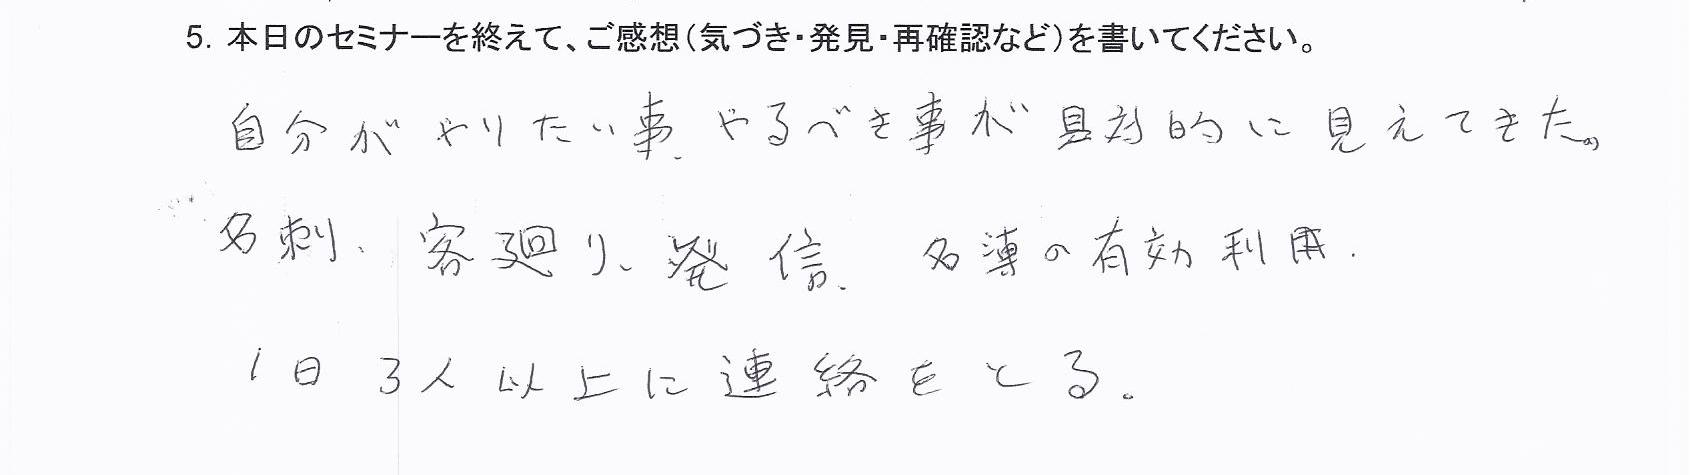 5. 本日のセミナーを終えて、ご感想（気づき・発見・再確認など）を書いてください。
自分がやりたい事、やるべき事が具対的に見えてきた。
名刺、客廻り、発信、名簿の有効利用.
1日3人以上に連絡をとる。